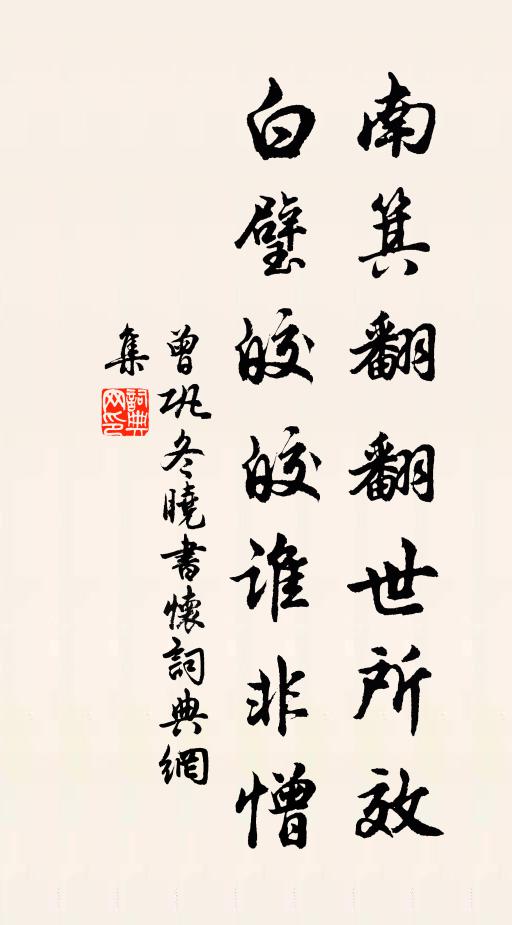 南箕翻翻世所效
白璧皎皎谁非憎
曾巩冬曉書懷詞典網
集
詞典
网印